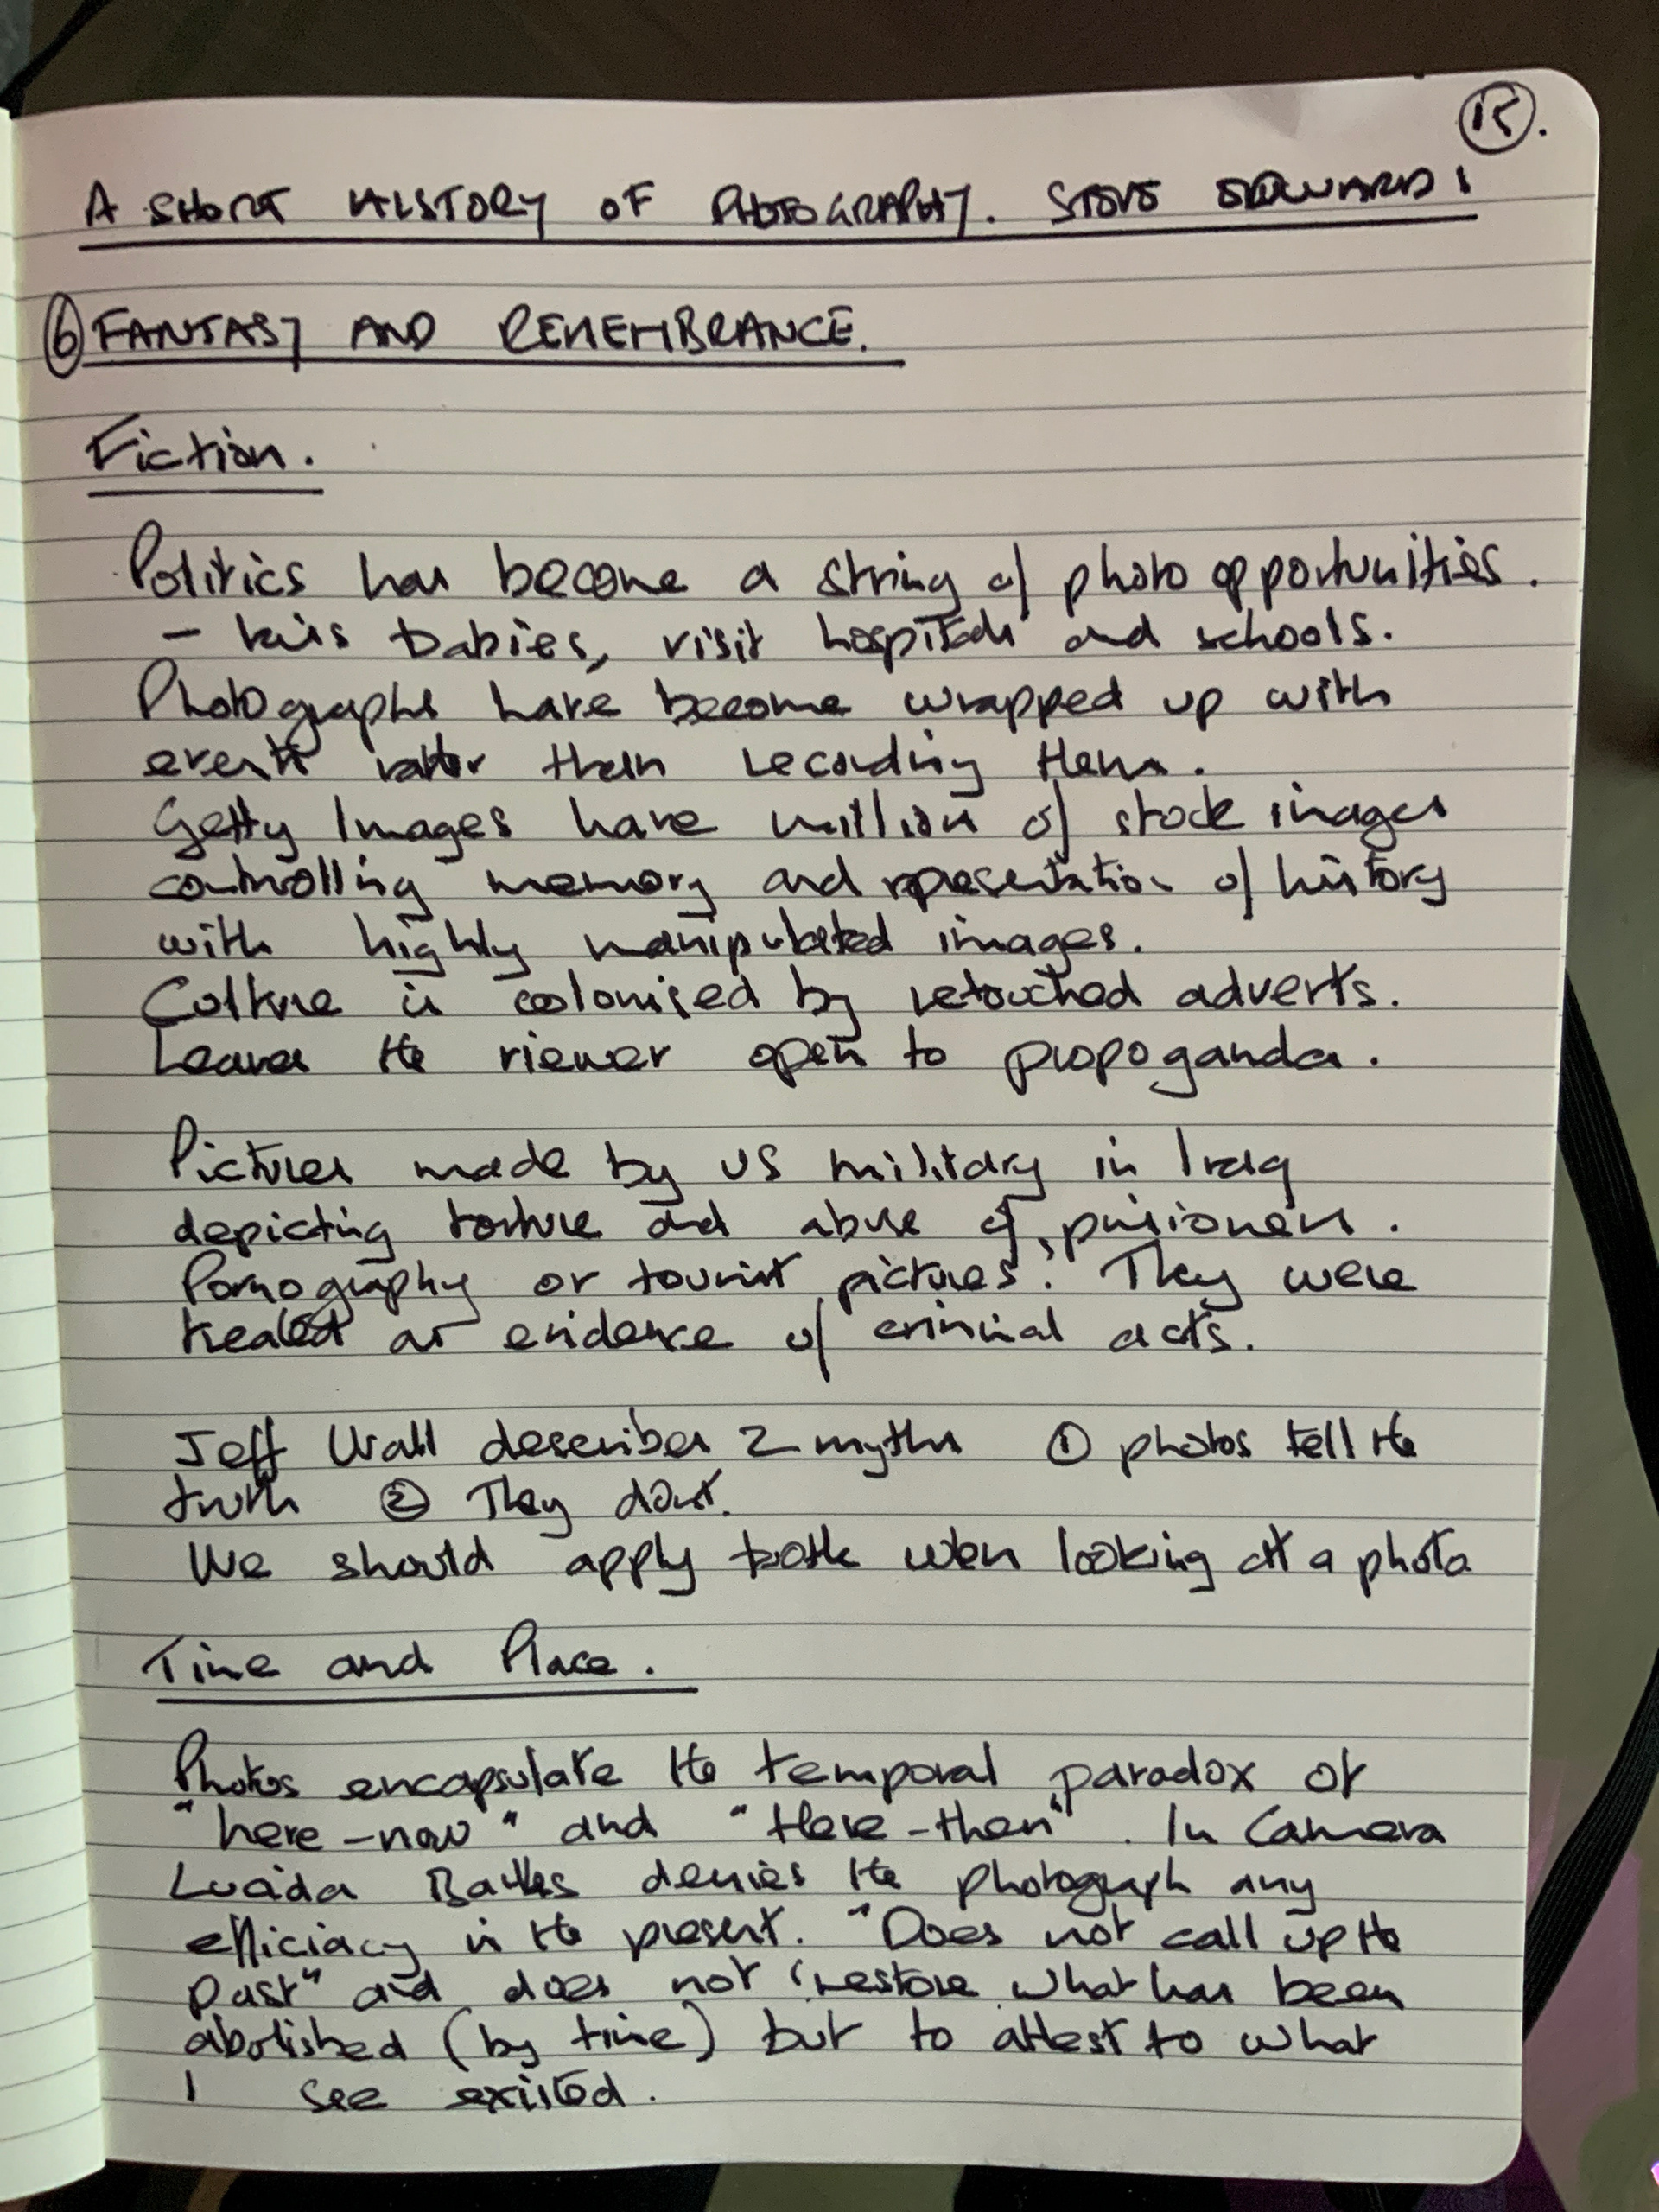 15.
A SHORT HISTORY OF PHOTOGRAPHY. STEVE EDWARDS
6 FANTASY AND REMEMBRANCE.
Fiction.
Politics has become a string of photo opportunities.
- kiss babies, visit hospitals and schools.
Photographs have become wrapped up with
events rather than recording them.
Getty Images have million of stock images
controlling memory and representation of history
with highly manipulated images.
Culture is colonised by retouched adverts.
Leaves the viewer open to propoganda.
Pictures made by US military in Iraq
depicting torture and abuse of prisioners.
Pornography or tourist pictures? They were
treated as evidence of criminal acts.
Jeff Wall describes 2 myths ① photos tell the
truth ② They dont.
We should apply both when looking at a photo
Time and Place.
Photos encapsulate the temporal paradox of
"here-now" and "there-then". In Camera
Lucida Barthes denies the photograph any
efficiacy in the present. "Does not call up the
past" and does not "restore what has been
abolished (by time) but to attest to what
I see existed.